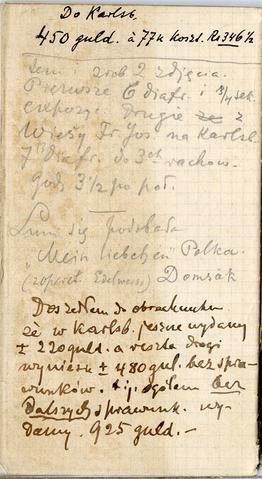 Do Karlsb.
450 guld. à 77 k koszt. Rs 346 1/2
Sem i zrob 2 zdjęcia.
Pierwsze 6 diafr. i 3/4 sek.
expozyc. Drugie ze z
Wieży Fr. Jos. na Karlsb.
7 diafr. do 3ch rachow.
godz 3 1/2 po poł.
Luni się podobała
"Mein liebchen" Polka.
(z operet. Edelweiss) Domzák
Doszedłem do obrachunku
że w Karlsb. jeszcze wydamy
± 220 guld. a reszta drogi
wyniesie ± 480 gul. bez spra-
wunków. t.j. ogółem bez
dalszych sprawunk. wy-
damy 925 guld. –